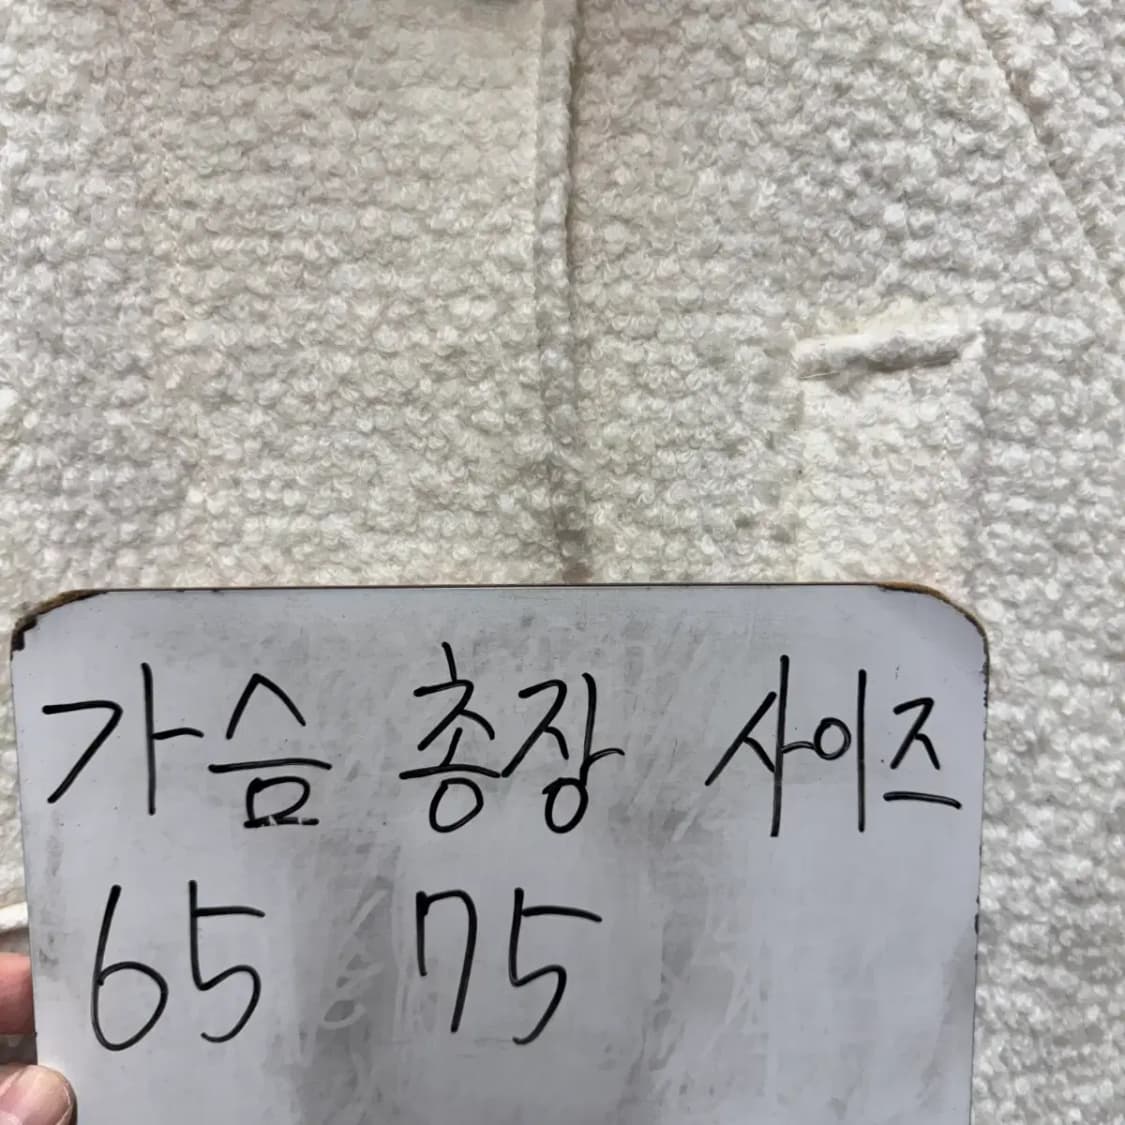 가슴 총장 사이즈
65 75